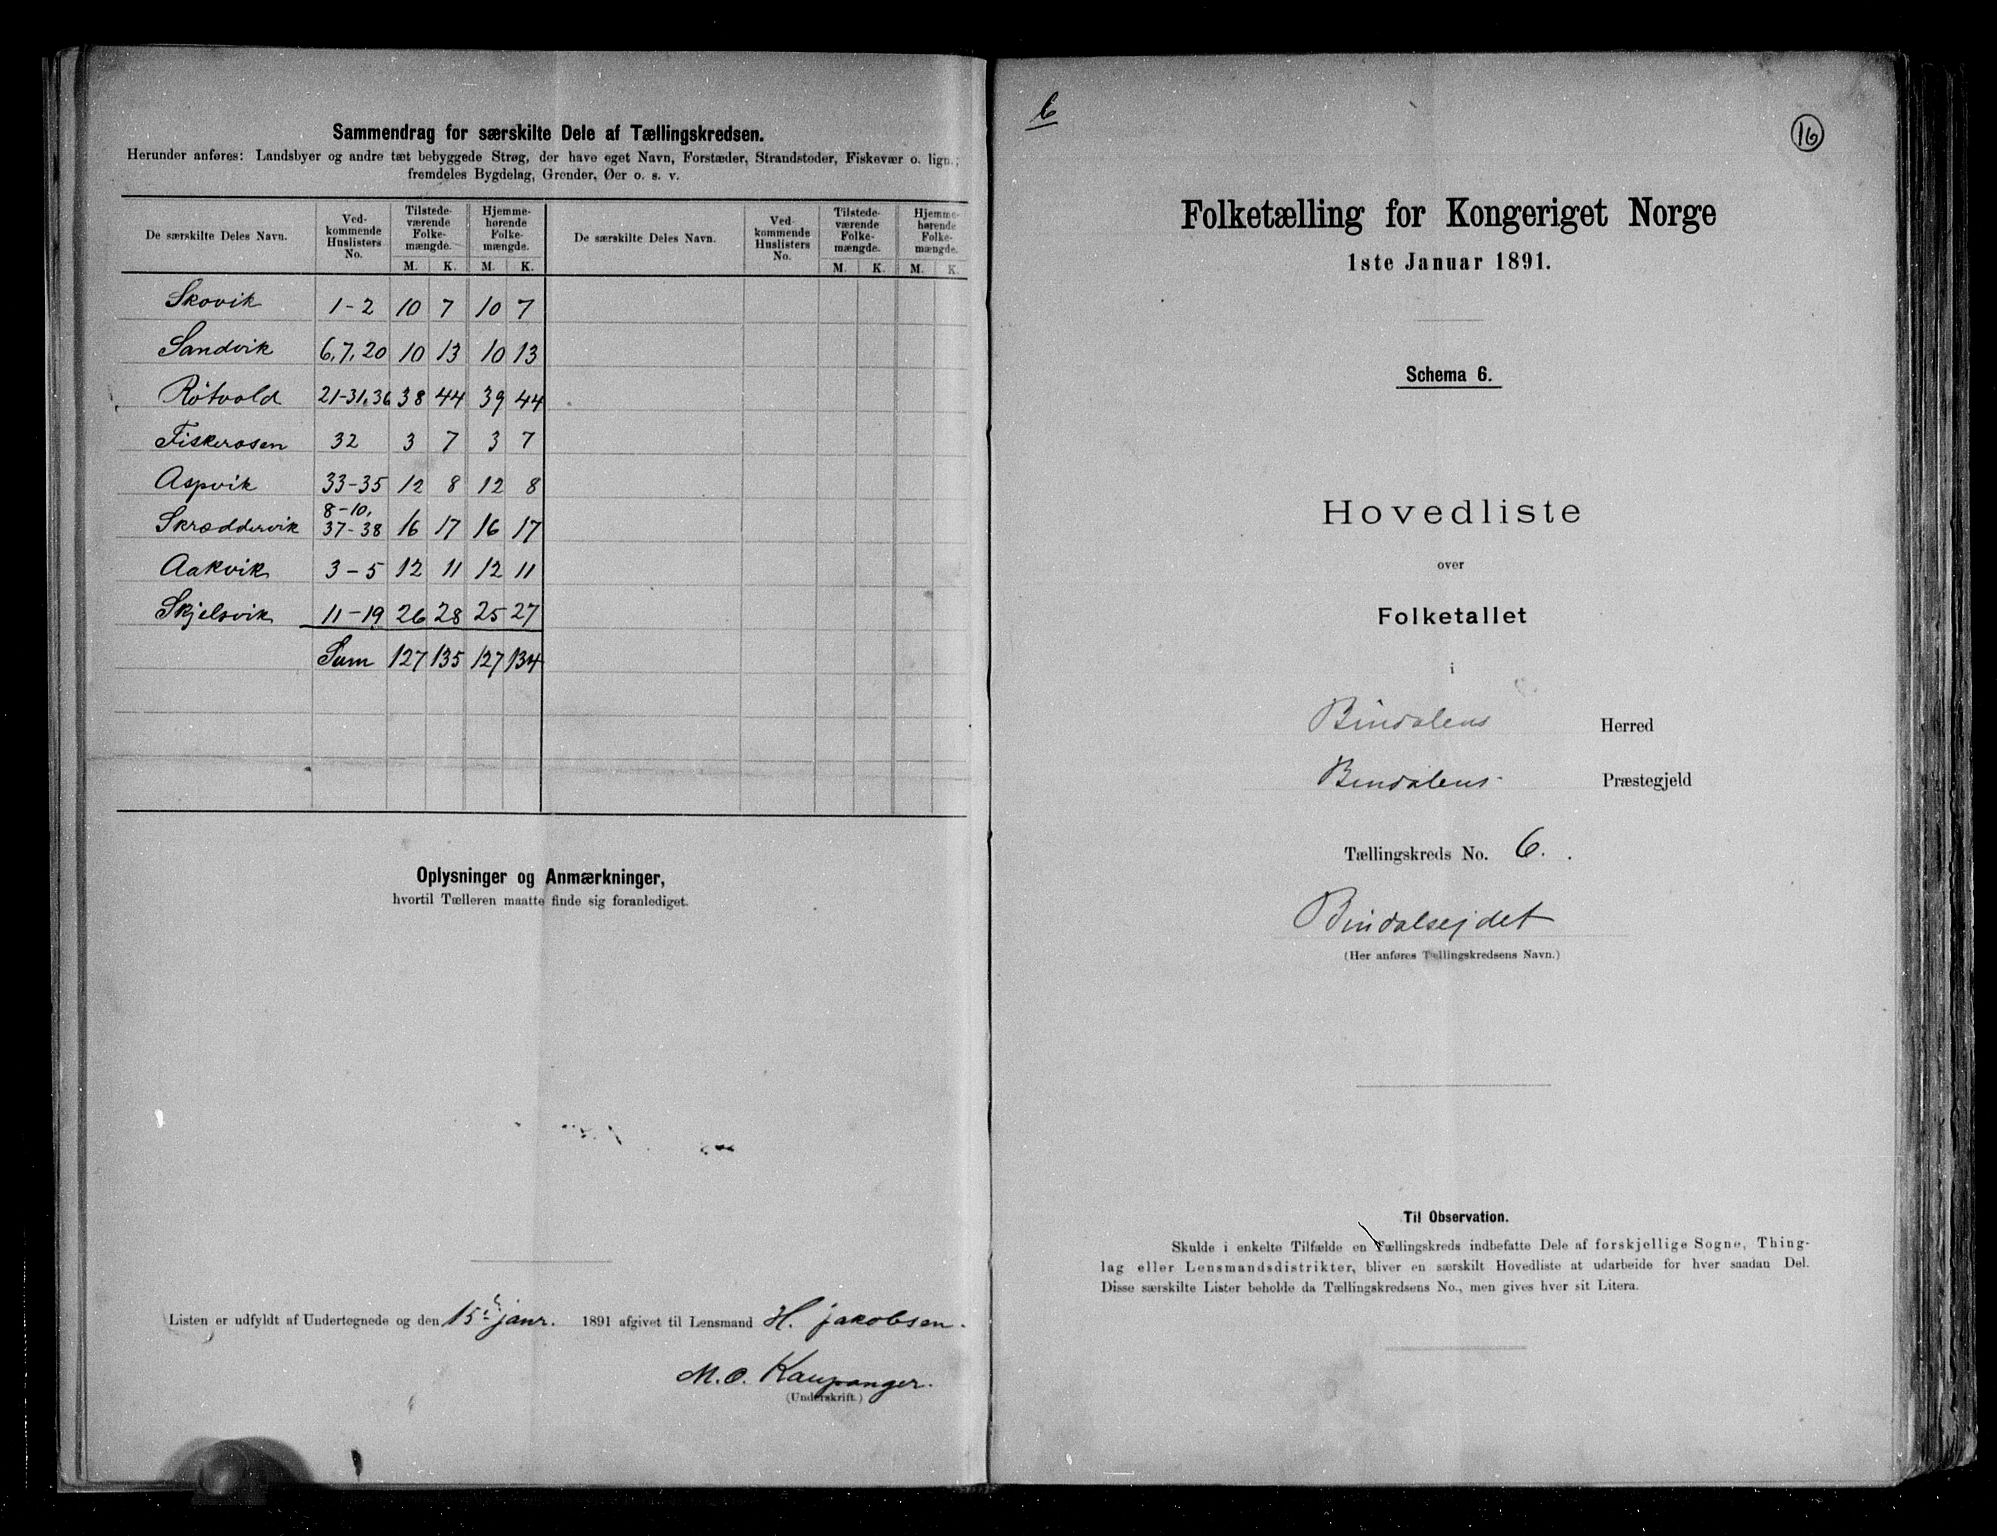 Sammendrag for særskilte Dele af Tællingskredsen.
Herunder anføres: Landsbyer og andre tæt bebyggede Strøg, der have eget Navn, Forstæder, Strandsteder, Fiskevær o. lign.;
fremdeles Bygdelag, Grender, Øer o. s. v.
De særskilte Deles Navn. Vedkommende Huslisters No. Tilstedeværende Folkemængde. M. K. Hjemmehørende Folkemængde. M. K. De særskilte Deles Navn. Vedkommende Huslisters No. Tilstedeværende Folkemængde. M. K. Hjemmehørende Folkemængde. M. K.
Skovik 1-2 10 7 10 7
Sandvik 6,7,20 10 13 10 13
Røtvold 21-31,36 38 44 39 44
Fiskerosen 32 3 7 3 7
Aspvik 33-35 12 8 12 8
Skræddervik 8-10, 37-38 16 17 16 17
Aakvik 3-5 12 11 12 11
Skjelsvik 11-19 26 28 25 27
Sum 127 135 127 134
Oplysninger og Anmærkninger,
hvortil Tælleren maatte finde sig foranlediget.
Listen er udfyldt af Undertegnede og den 15 janr. 1891 afgivet til Lensmand H. Jakobsen.
M. O. Kaupanger.
(Underskrift.)
6
16
Folketælling for Kongeriget Norge
1ste Januar 1891.
Schema 6.
Hovedliste
over
Folketallet
i
Bindalens Herred
Bindalens Præstegjeld
Tællingskreds No. 6.
Bindalsejdet
(Her anføres Tællingskredsens Navn.)
Til Observation.
Skulde i enkelte Tilfælde en Tællingskreds indbefatte Dele af forskjellige Sogne, Thing-
lag eller Lensmandsdistrikter, bliver en særskilt Hovedliste at udarbeide for hver saadan Del.
Disse særskilte Lister beholde da Tællingskredsens No., men gives hver sit Litera.